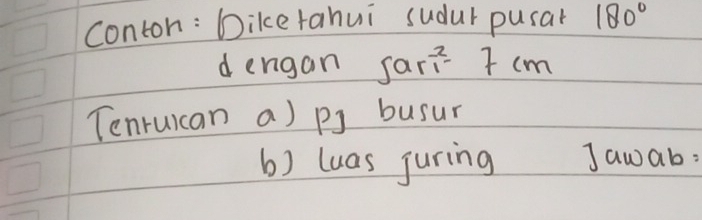 Contoh: Diketahui sudut pusat 180°
dengan jari² 7 cm
Tentukan a) pj busur
b) luas juring Jawab: